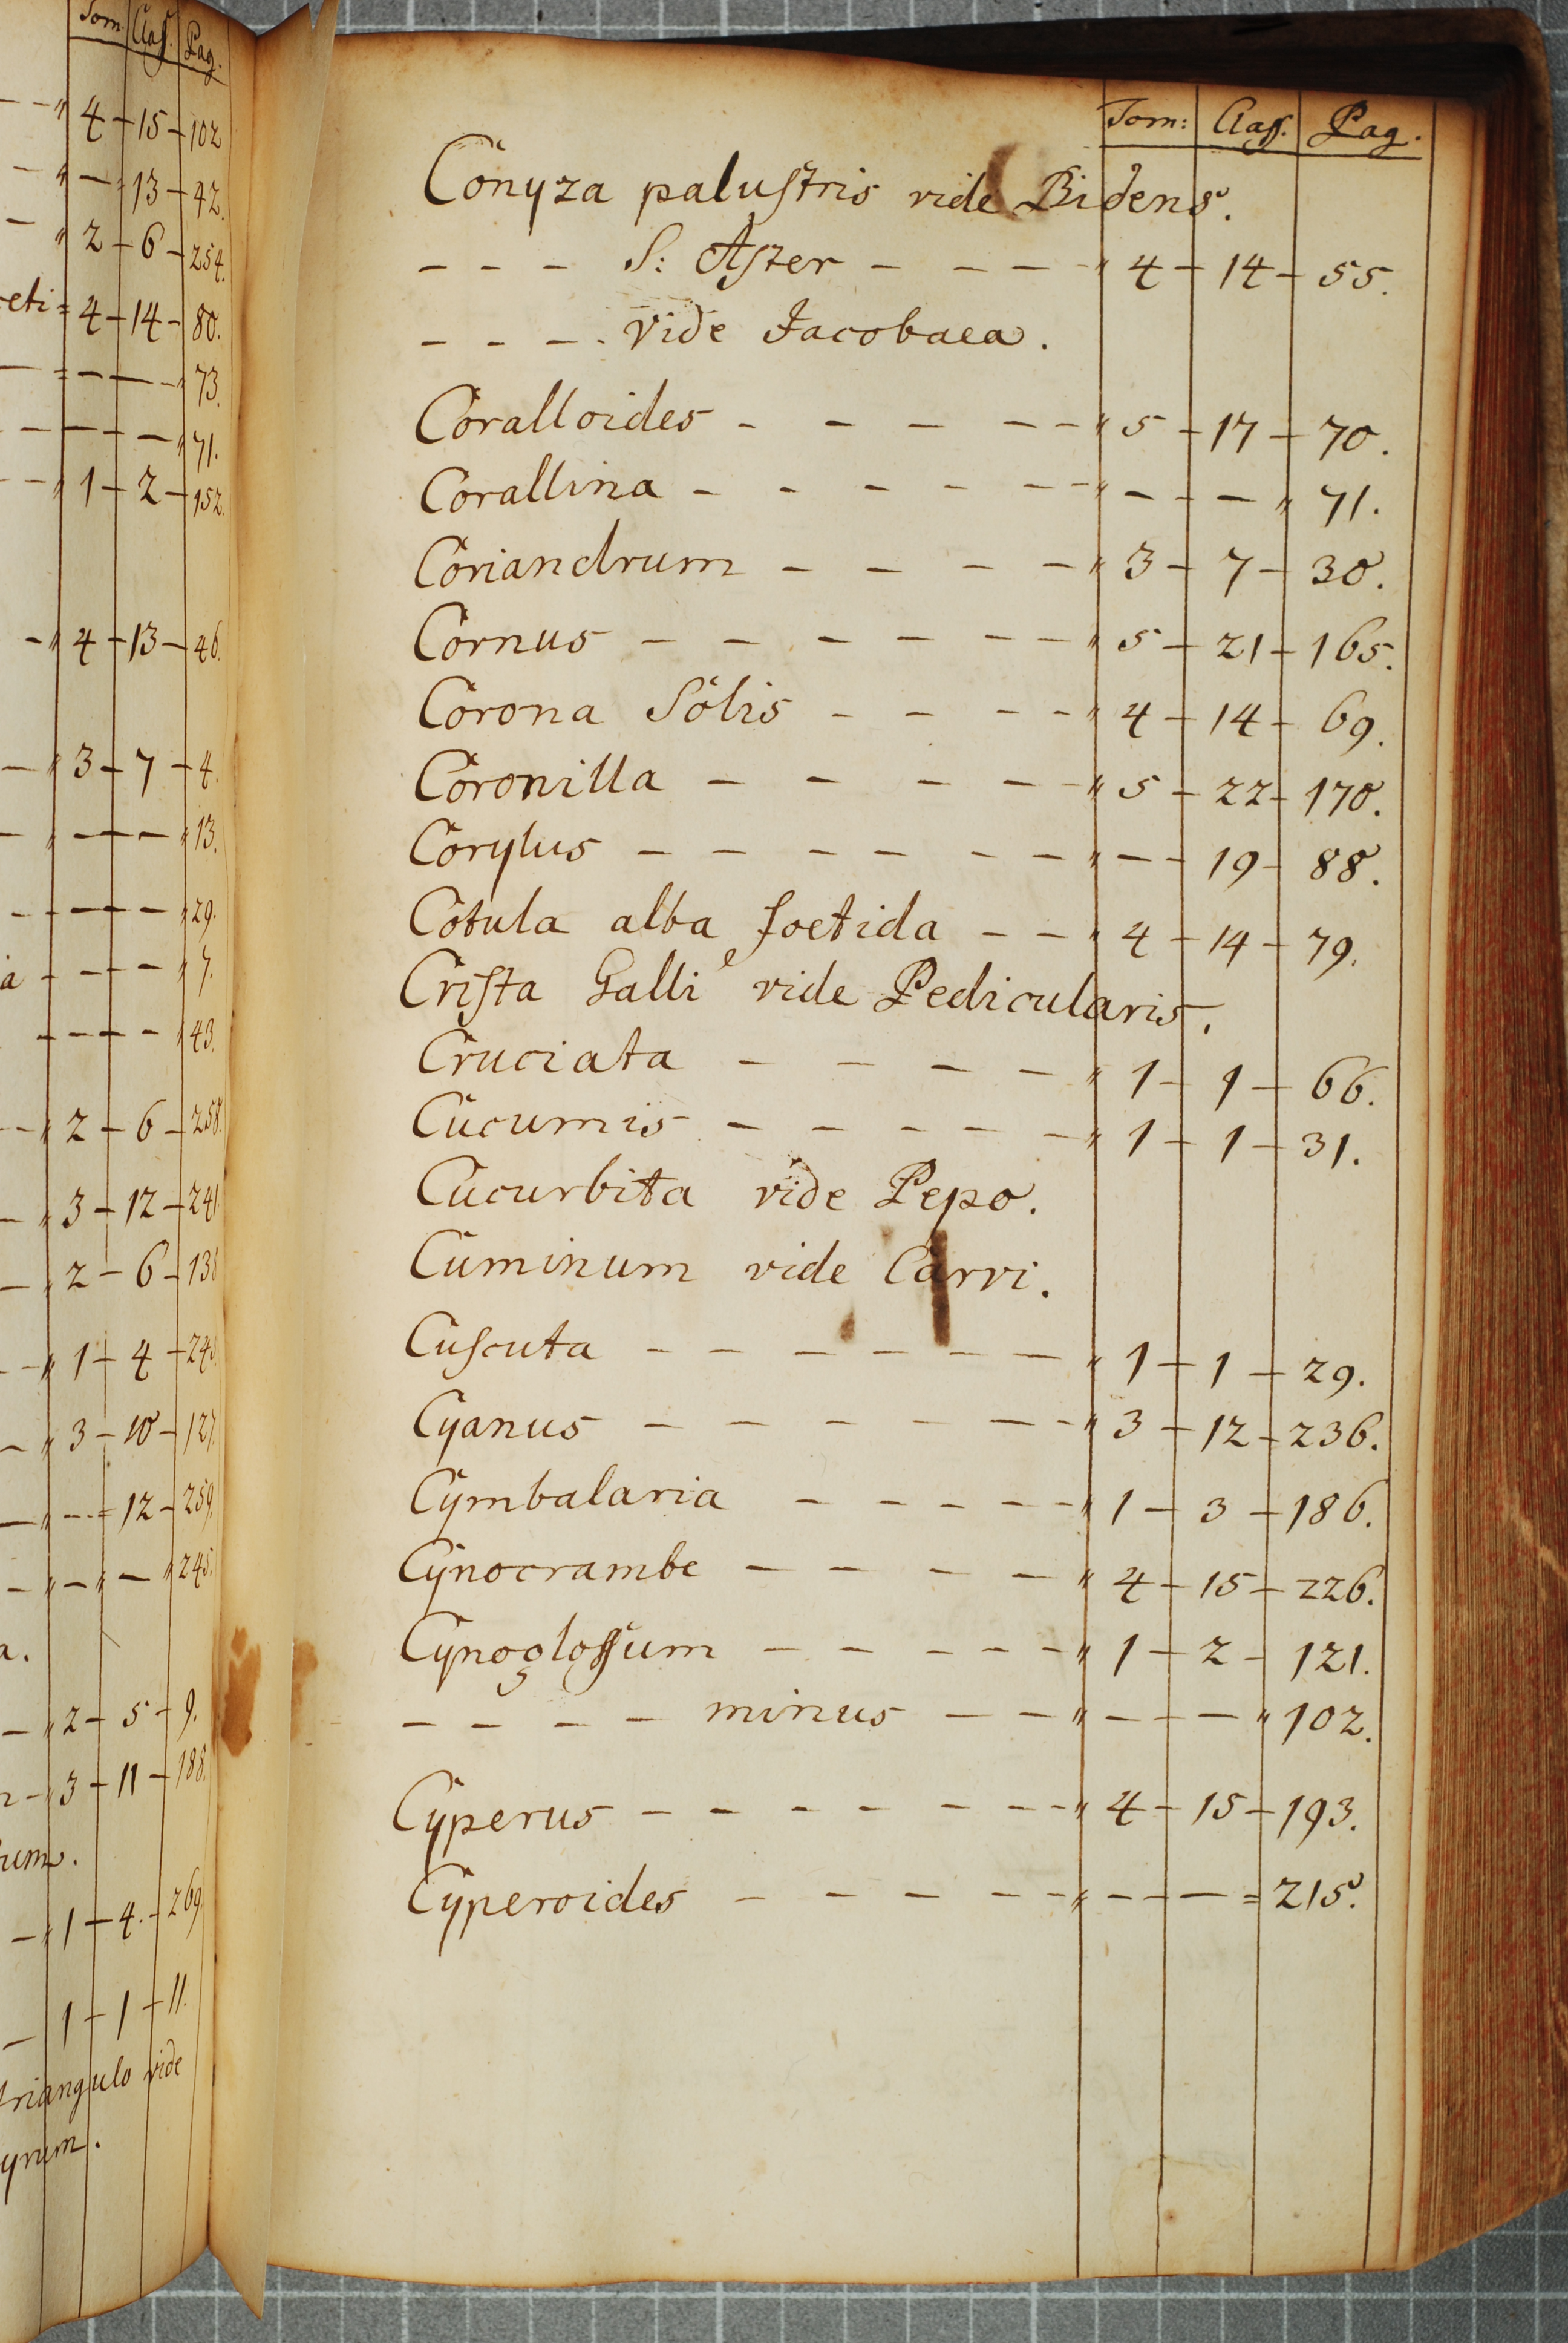 Tom. Claſſ. Pag.
4 - 15 - 102
- 13 - 42.
2 - 6 - 254.
eti = 4 - 14 - 80.
= - - 73.
- - - 71.
1 - 2 - 152.
4 - 13 - 46.
3 - 7 - 4.
- - - 13.
- - - 29.
a - - - 7.
- - - 43.
2 - 6 - 258.
3 - 12 - 241
2 - 6 - 138
1 - 4 - 243.
3 - 10 - 127.
- - 12 - 259.
- - - 245.
a.
2 - 5 - 9.
3 - 11 - 188.
um.
1 - 4. - 269.
1 - 1 - 11.
triangulo vide
yrum.
Tom: Claſſ. Pag.
Conyza paluſtris vide Bidens.
- - - S: Aſter - - - - " 4 - 14 - 55.
- - - - . Vide Jacobaea.
Coralloides - - - - - " 5 - 17 - 70.
Corallina - - - - - - " - - - " 71.
Coriandrum - - - - " 3 - 7 - 30.
Cornus - - - - - - - " 5 - 21 - 165.
Corona Solis - - - - " 4 - 14 - 69.
Coronilla - - - - - " 5 - 22 - 170.
Corylus - - - - - - " - - 19 - 88.
Cotula alba foetida - - " 4 - 14 - 79.
Criſta Galli vide Pedicularis.
Cruciata - - - - " 1 - 1 - 66.
Cucumis - - - - - " 1 - 1 - 31.
Cucurbita vide Pepo.
Cuminum vide Carvi.
Cuſcuta - - - - - - " 1 - 1 - 29.
Cyanus - - - - - - - " 3 - 12 - 236.
Cymbalaria - - - - - " 1 - 3 - 186.
Cynocrambe - - - - " 4 - 15 - 226.
Cynogloſſum - - - - - " 1 - 2 - 121.
- - - - minus - - " - - - " 102.
Cyperus - - - - - - - " 4 - 15 - 193.
Cyperoides - - - - - " - - - = 215.